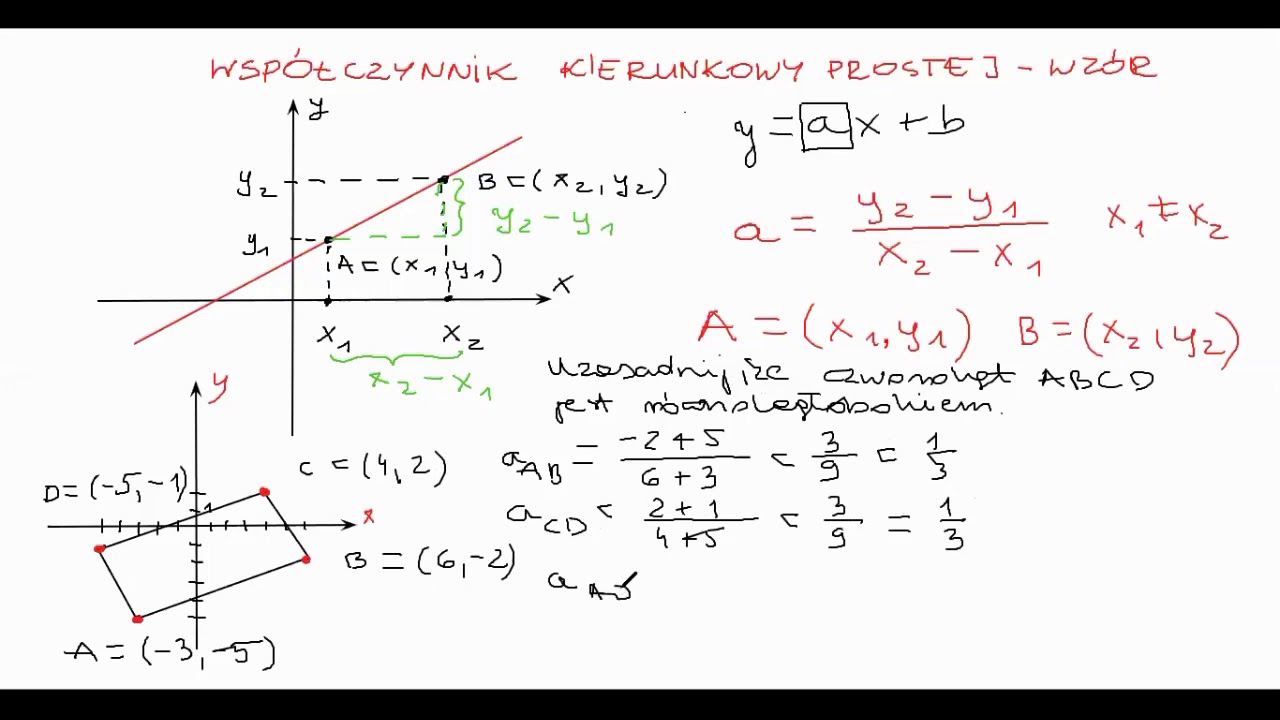 WSPÓŁCZYNNIK KIERUNKOWY PROSTEJ - WZÓR
y
y = ax + b
y2
B = (x2, y2)
y2 - y1
a = (y2 - y1)/(x2 - x1) x1 ≠ x2
y1
A = (x1, y1)
x
x1 x2
x2 - x1
A = (x1, y1) B = (x2, y2)
Uzasadnij, że czworokąt ABCD
jest równoległobokiem.
y
D = (-5, -1)
C = (4, 2)
1
x
B = (6, -2)
A = (-3, -5)
aAB = (-2 + 5)/(6 + 3) = 3/9 = 1/3
aCD = (2 + 1)/(4 + 5) = 3/9 = 1/3
a